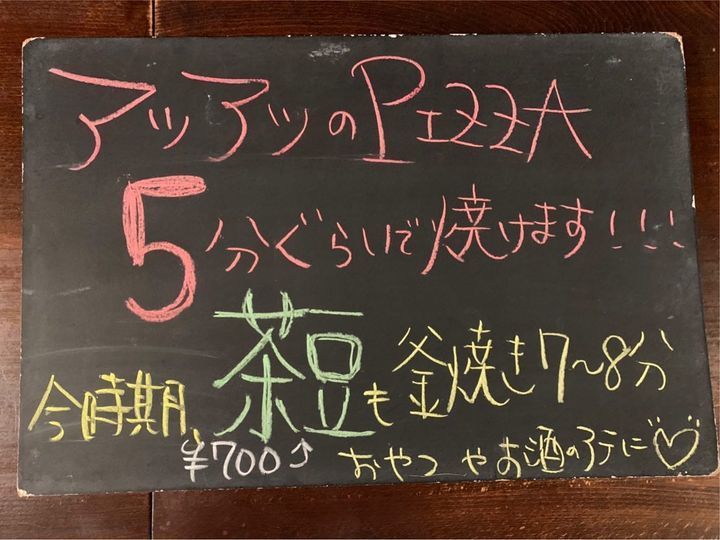 アツアツのPIZZA
5分ぐらいで焼けます!!!
今時期、茶豆も釜焼き7~8分
¥700⤴ おやつやお酒のアテに♡